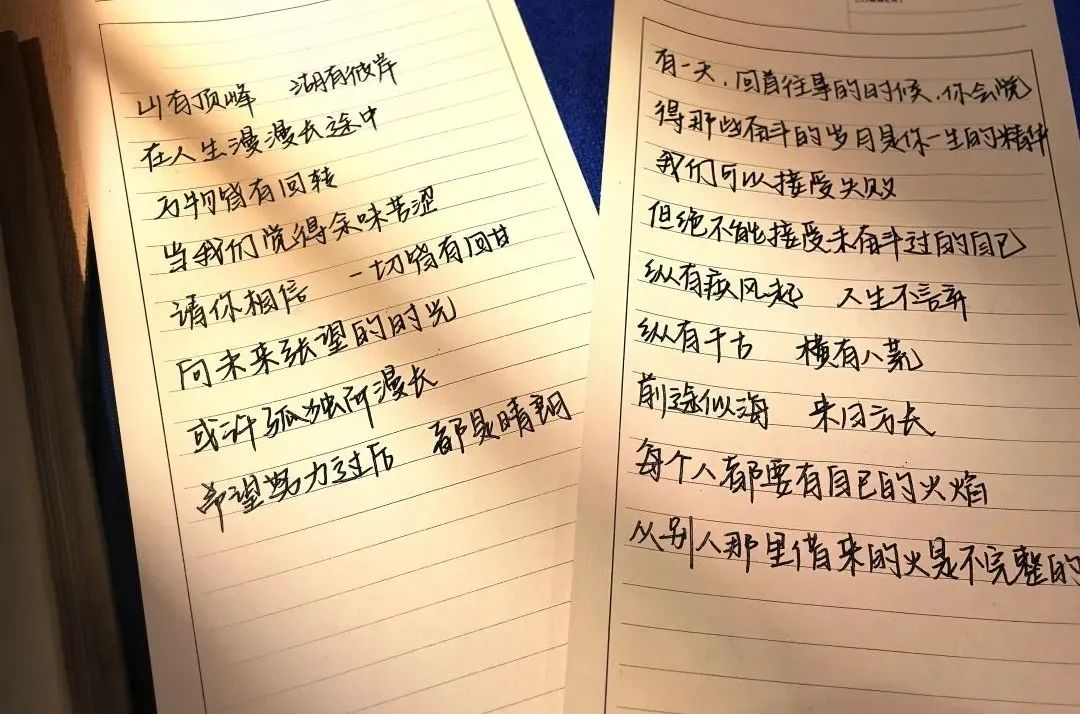 山有顶峰 湖有彼岸
在人生漫漫长途中
万物皆有回转
当我们觉得余味苦涩
请你相信 一切皆有回甘
向未来张望的时光
或许孤独而漫长
希望努力过后 都是晴朗
有一天，回首往事的时候，你会觉
得那些奋斗的岁月是你一生的精华
我们可以接受失败
但绝不能接受未奋斗过的自己
纵有疾风起 人生不言弃
纵有千古 横有八荒
前途似海 来日方长
每个人都要有自己的火焰
从别人那里借来的火是不完整的